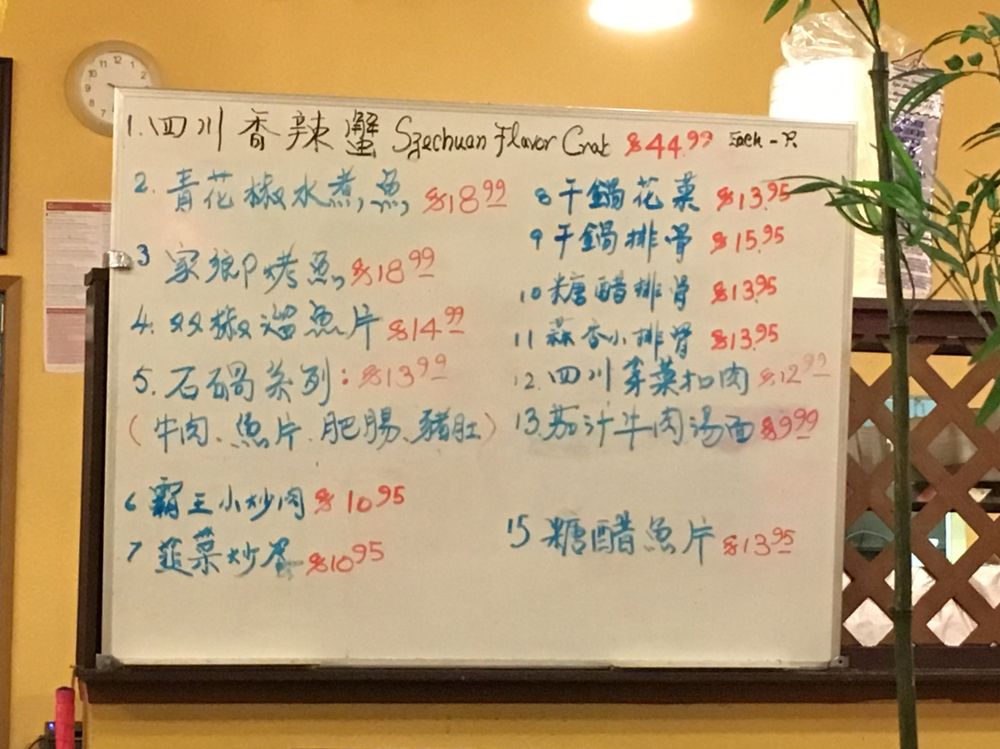 1.四川香辣蟹 Szechuan Flavor Crab $44.99
2. 青花椒水煮魚 $18.99
3 家鄉烤魚 $18.99
4. 双椒溜魚片 $14.99
5. 石鍋系列: $13.99
(牛肉、魚片、肥腸、豬肚)
6 霸王小炒肉 $10.95
7 韮菜炒蛋 $10.95
8 干鍋花菜 $13.95
9 干鍋排骨 $15.95
10 糖醋排骨 $13.95
11 蒜香小排骨 $13.95
12. 四川芽菜扣肉 $12.99
13. 茄汁牛肉湯面 $9.99
15 糖醋魚片 $13.95